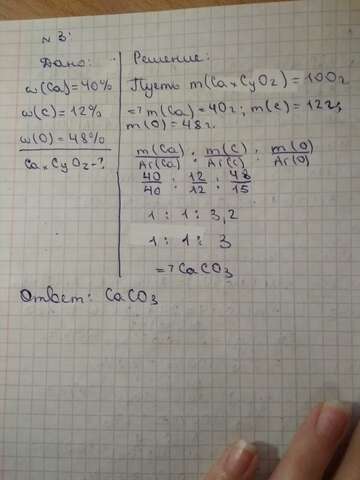 № 3.
Дано:
ω(Ca)=40%
ω(C)=12%
ω(O)=48%
CaxCyOz-?
Решение:
Пусть m(CaxCyOz)=100г
=> m(Ca)=40г; m(C)=12г;
m(O)=48г.
m(Ca)/Ar(Ca) : m(C)/Ar(C) : m(O)/Ar(O)
40/40 : 12/12 : 48/15
1 : 1 : 3,2
1 : 1 : 3
=> CaCO3
Ответ: CaCO3